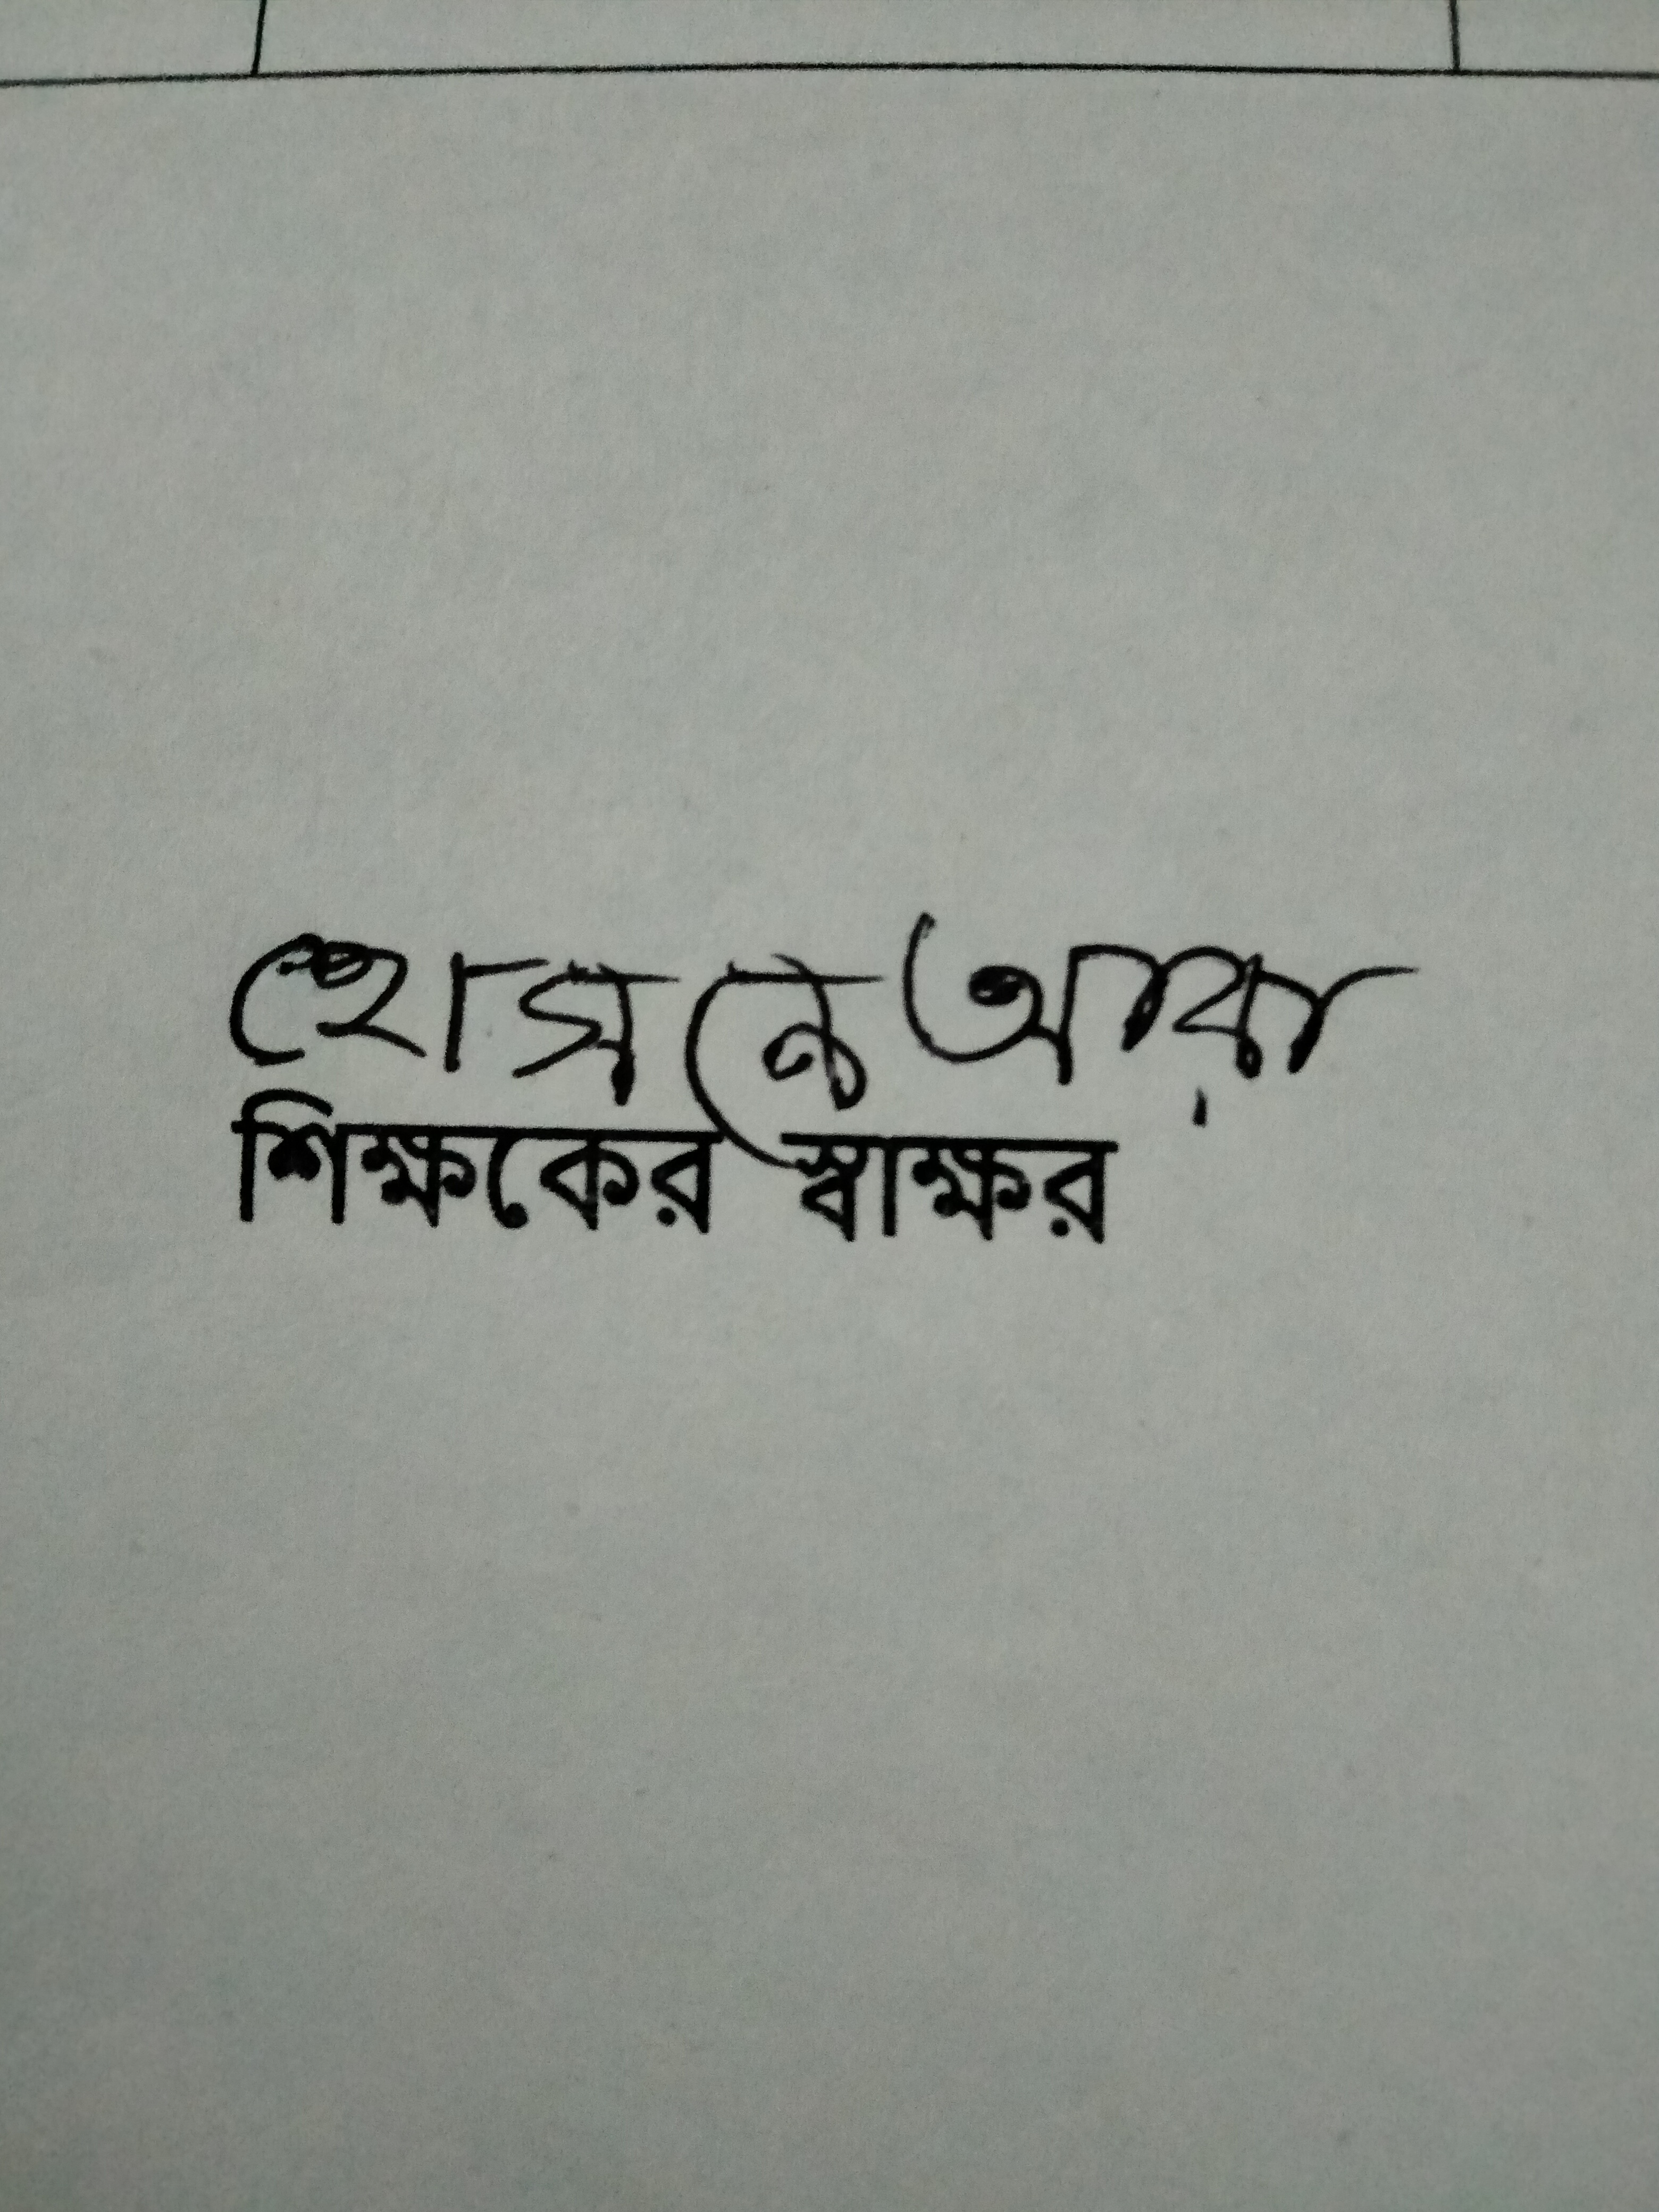 হোসনে আরা
শিক্ষকের স্বাক্ষর